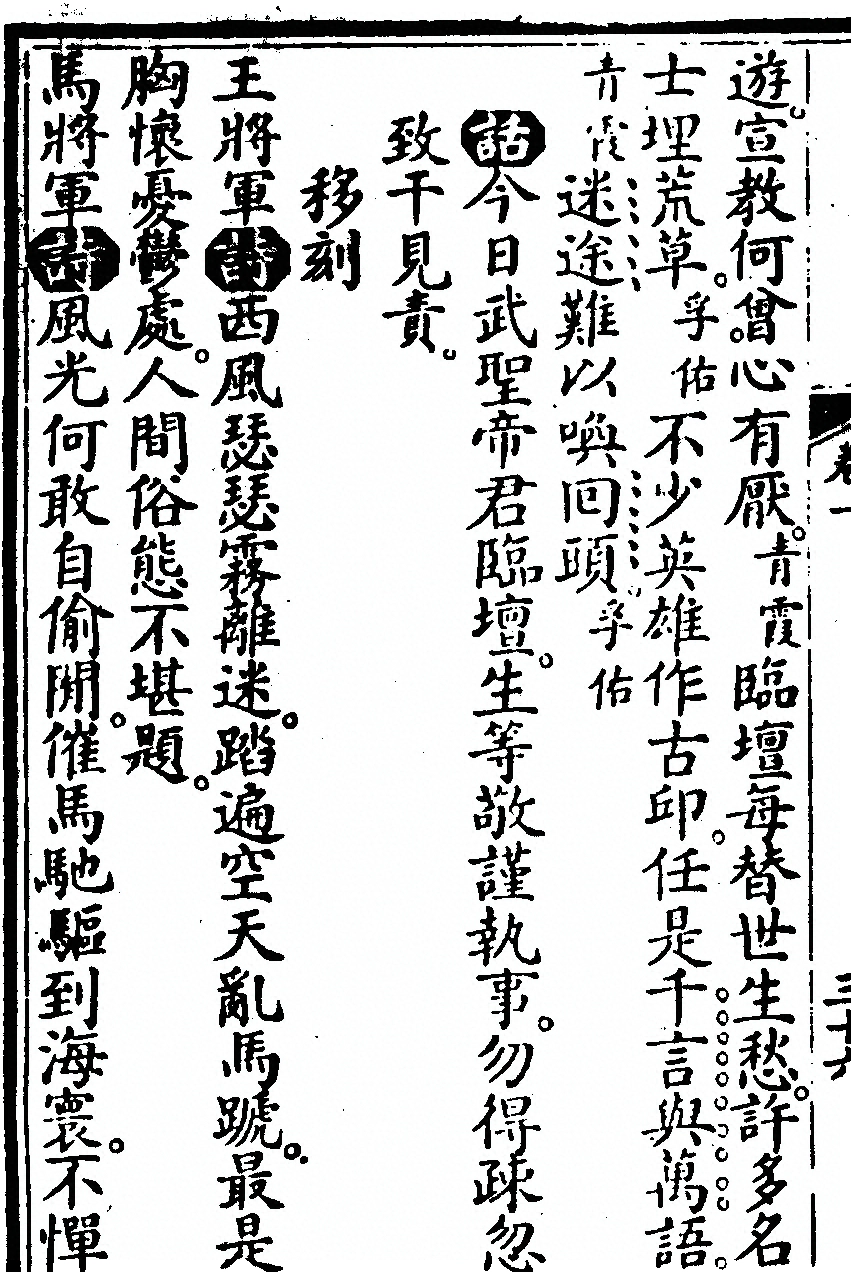 卷一
三十六
遊。宣教何曾。心有厭。青霞臨壇每替世生愁。許多名
士埋荒草。孚佑不少英雄作古邱。任是千言與萬語。
青霞迷途難以喚回頭。孚佑
話今日武聖帝君臨壇。生等敬謹執事。勿得疎忽
致干見責。
移刻
王將軍詩西風瑟瑟霧離迷。踏遍空天亂馬蹏。最是
胸懷憂鬱處。人間俗態不堪題。
馬將軍詩風光何敢自偷閒。催馬馳驅到海寰。不憚